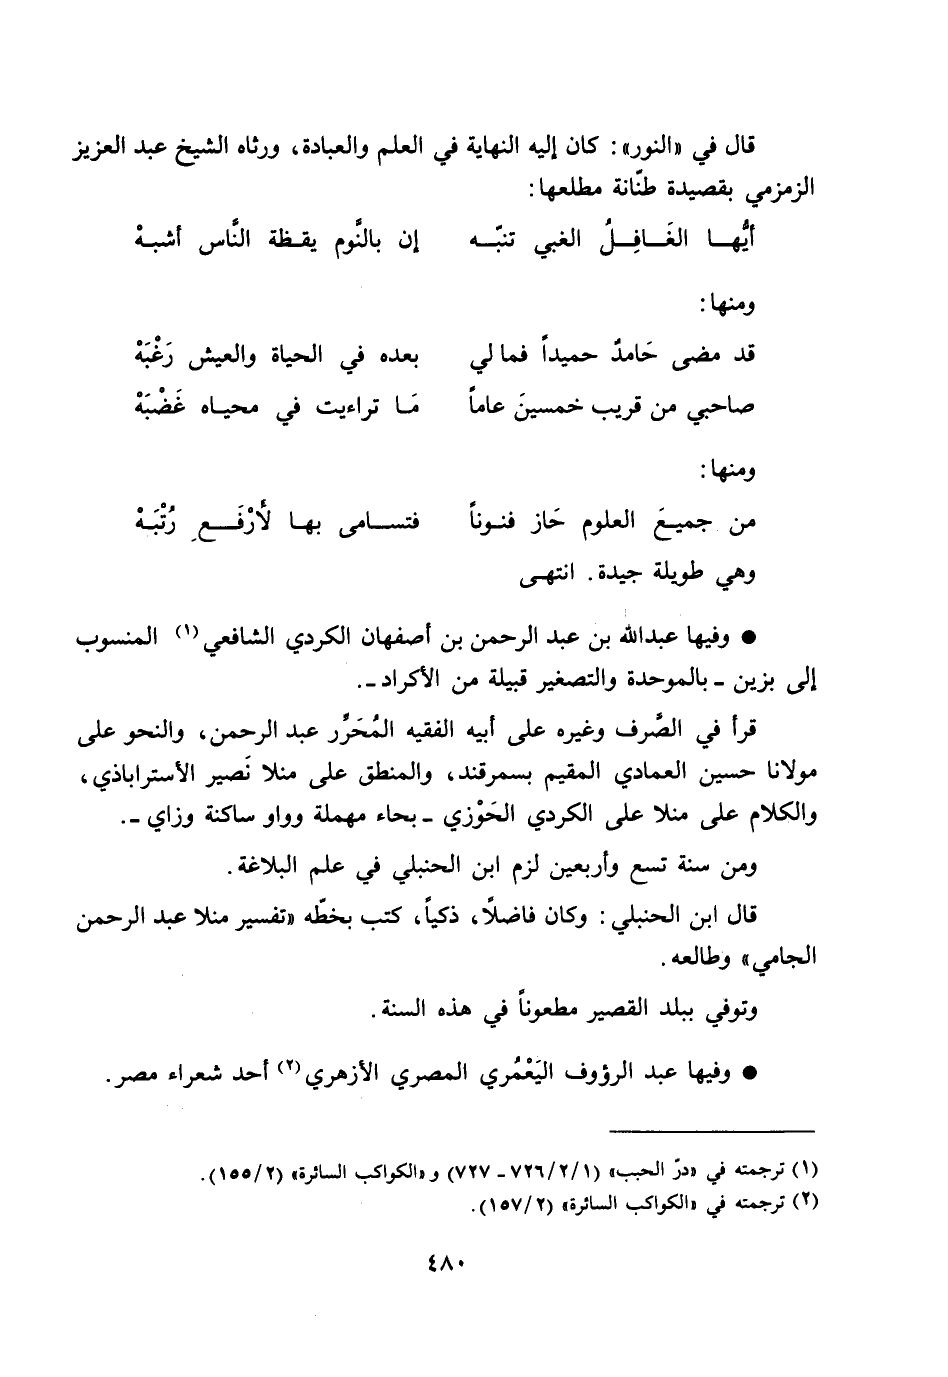 قال في «النور»: كان إليه النهاية في العلم والعبادة، ورثاه الشيخ عبد العزيز
الزمزمي بقصيدة طنّانة مطلعها:
أيُّهـا الغَـافِـلُ الغبي تنبّـه إن بالنَّوم يقـظة النَّاس أشبـهْ
ومنها:
قد مضى حَامدٌ حميداً فما لي بعده في الحياة والعيش رَغْبَهْ
صاحبي من قريب خمسينَ عاماً مَـا تراءيت في محيـاه غَضْبَهْ
ومنها:
من جميعَ العلوم حَاز فنـوناً فتسـامى بهـا لأَرْفَـعِ رُتْبَـهْ
وهي طويلة جيدة. انتهـى
● وفيها عبدالله بن عبد الرحمن بن أصفهان الكردي الشافعي(١) المنسوب
إلى بزين ـ بالموحدة والتصغير قبيلة من الأكراد ـ.
قرأ في الصَّرف وغيره على أبيه الفقيه المُحَرِّر عبد الرحمن، والنحو على
مولانا حسين العمادي المقيم بسمرقند، والمنطق على منلا نَصير الأستراباذي،
والكلام على منلا على الكردي الحَوْزي ـ بحاء مهملة وواو ساكنة وزاي ـ.
ومن سنة تسع وأربعين لزم ابن الحنبلي في علم البلاغة.
قال ابن الحنبلي: وكان فاضلًا، ذكياً، كتب بخطّه «تفسير منلا عبد الرحمن
الجامي» وطالعه.
وتوفي ببلد القصير مطعوناً في هذه السنة.
● وفيها عبد الرؤوف اليَعْمُري المصري الأزهري(٢) أحد شعراء مصر.
(١) ترجمته في «درّ الحبب» (٧٢٦/٢/١ ـ ٧٢٧) و «الكواكب السائرة» (١٥٥/٢).
(٢) ترجمته في «الكواكب السائرة» (١٥٧/٢).
٤٨٠